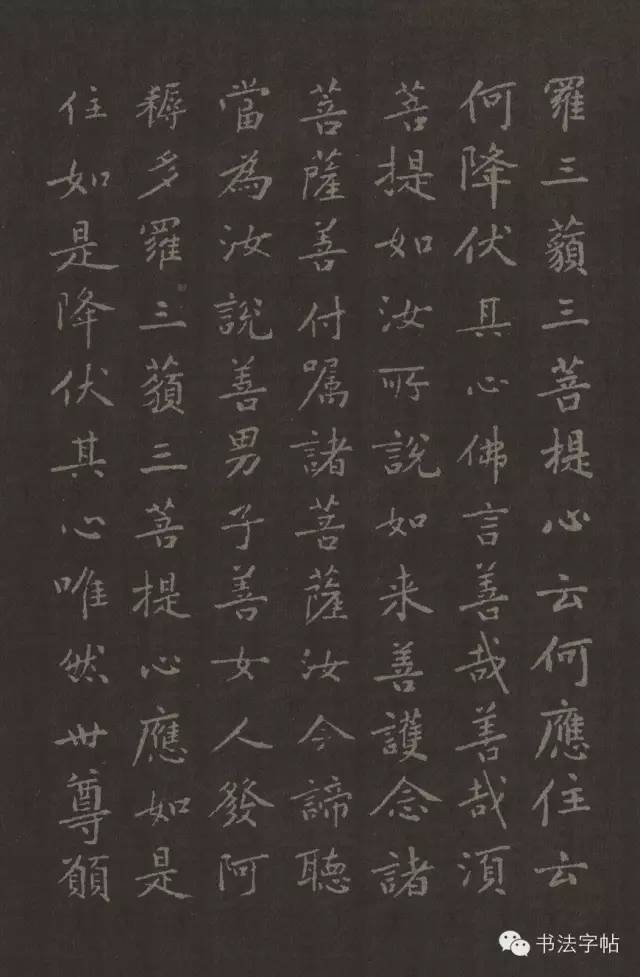 羅三藐三菩提心云何應住云
何降伏其心佛言善哉善哉須
菩提如汝所說如来善護念諸
菩薩善付嘱諸菩薩汝今諦聽
當為汝說善男子善女人發阿
耨多羅三藐三菩提心應如是
住如是降伏其心唯然世尊願
书法字帖